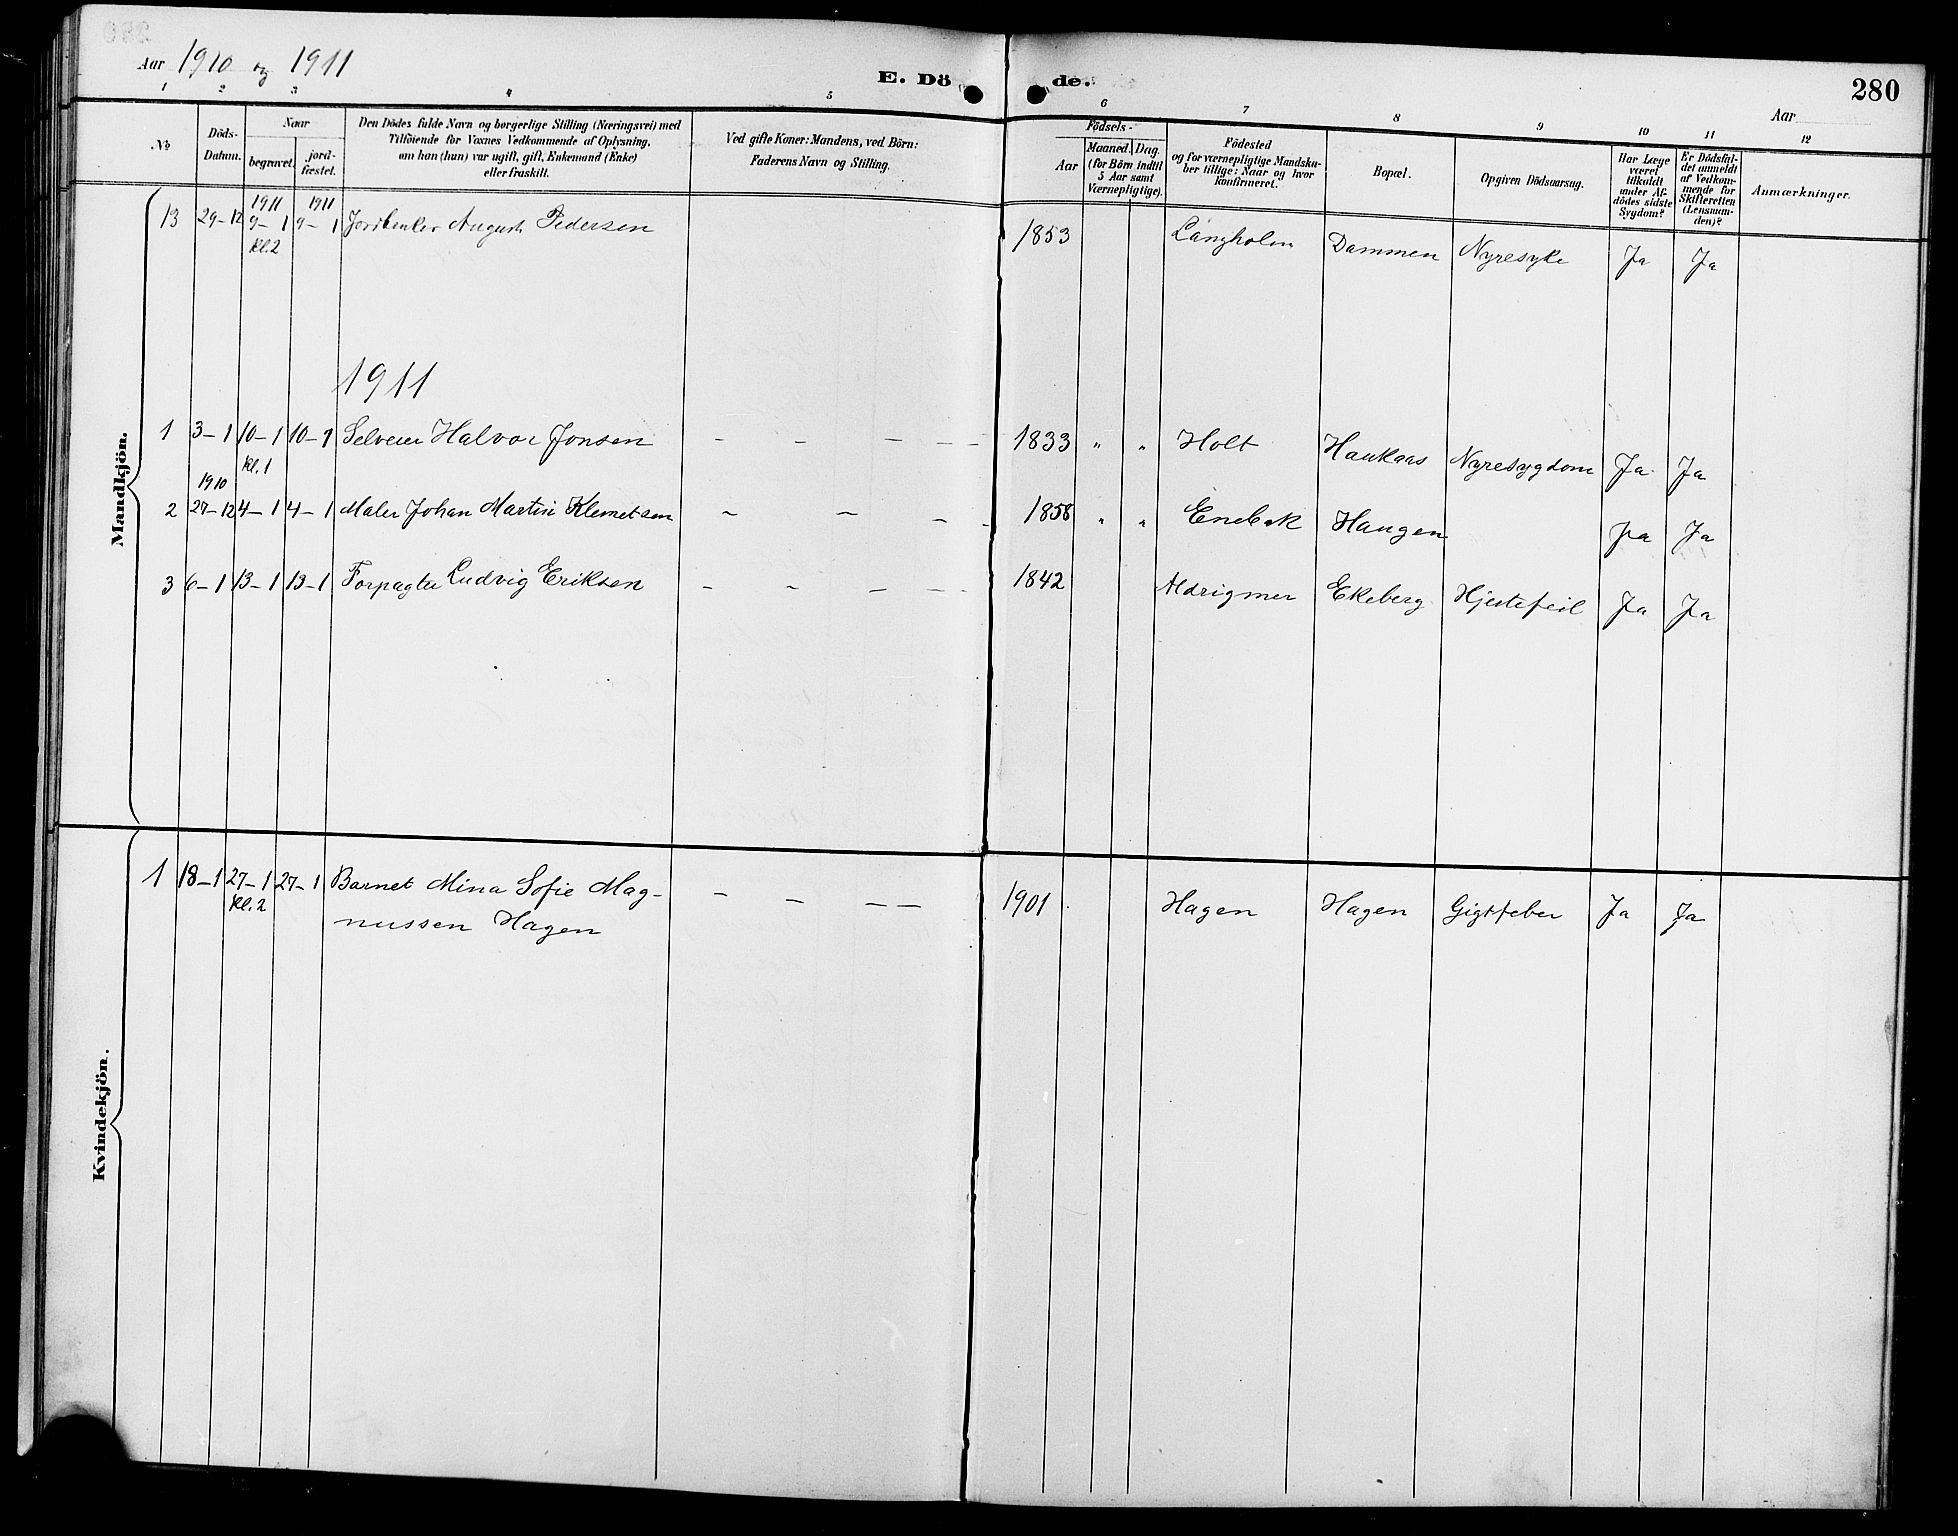 Aar 1910 og 1911
E. Dö de.
280
Aar
1 2 3 4 5 6 7 8 9 10 11 12
No.
Döds-Datum.
Naar
begravet.
jord-fæstet.
Den Dödes fulde Navn og borgerlige Stilling (Næringsvei) med
Tilföiende for Voxnes Vedkommende af Oplysning,
om han (hun) var ugift, gift, Enkemand (Enke)
eller fraskilt.
Ved gifte Koner: Mandens, ved Börn:
Faderens Navn og Stilling.
Födsels-
Aar
Maaned. Dag.
(for Börn indtil
5 Aar samt
Værnepligtige).
Födested
og for værnepligtige Mandska-
ber tillige: Naar og hvor
konfirmeret.
Bopæl.
Opgiven Dödsaarsag.
Har Læge
været
tilkaldt
under Af-
dödes sidste
Sygdom?
Er Dödsfal-
det anmeldt
af Vedkom-
mende for
Skifteretten
(Lensman-
den)?
Anmærkninger.
Mandkjön.
1911 1911
13 29-12 9-1 9-1 August Pedersen 1853 Langholen Dammen Nyresyke Ja Ja
Kl.2
1911
1 3-1 10-1 10-1 Selveier Halvor Jonsen – – – – – 1833 " " Holt Haukaas Nyresygdom Ja Ja
Kl.1
1910
2 27-12 4-1 4-1 Maler Johan Martin Klemetsen – – – – 1858 " " Enebak Haugen Ja Ja
3 6-1 13-1 13-1 Forpagter Ludvig Eriksen – – – – – 1842 Aldrigmer Ekeberg Hjertefeil Ja Ja
Kvindekjön.
1 18-1 27-1 27-1 Barnet Mina Sofie Mag- – – – – 1901 Hagen Hagen Gigtfeber Ja Ja
Kl.2 nussen Hagen